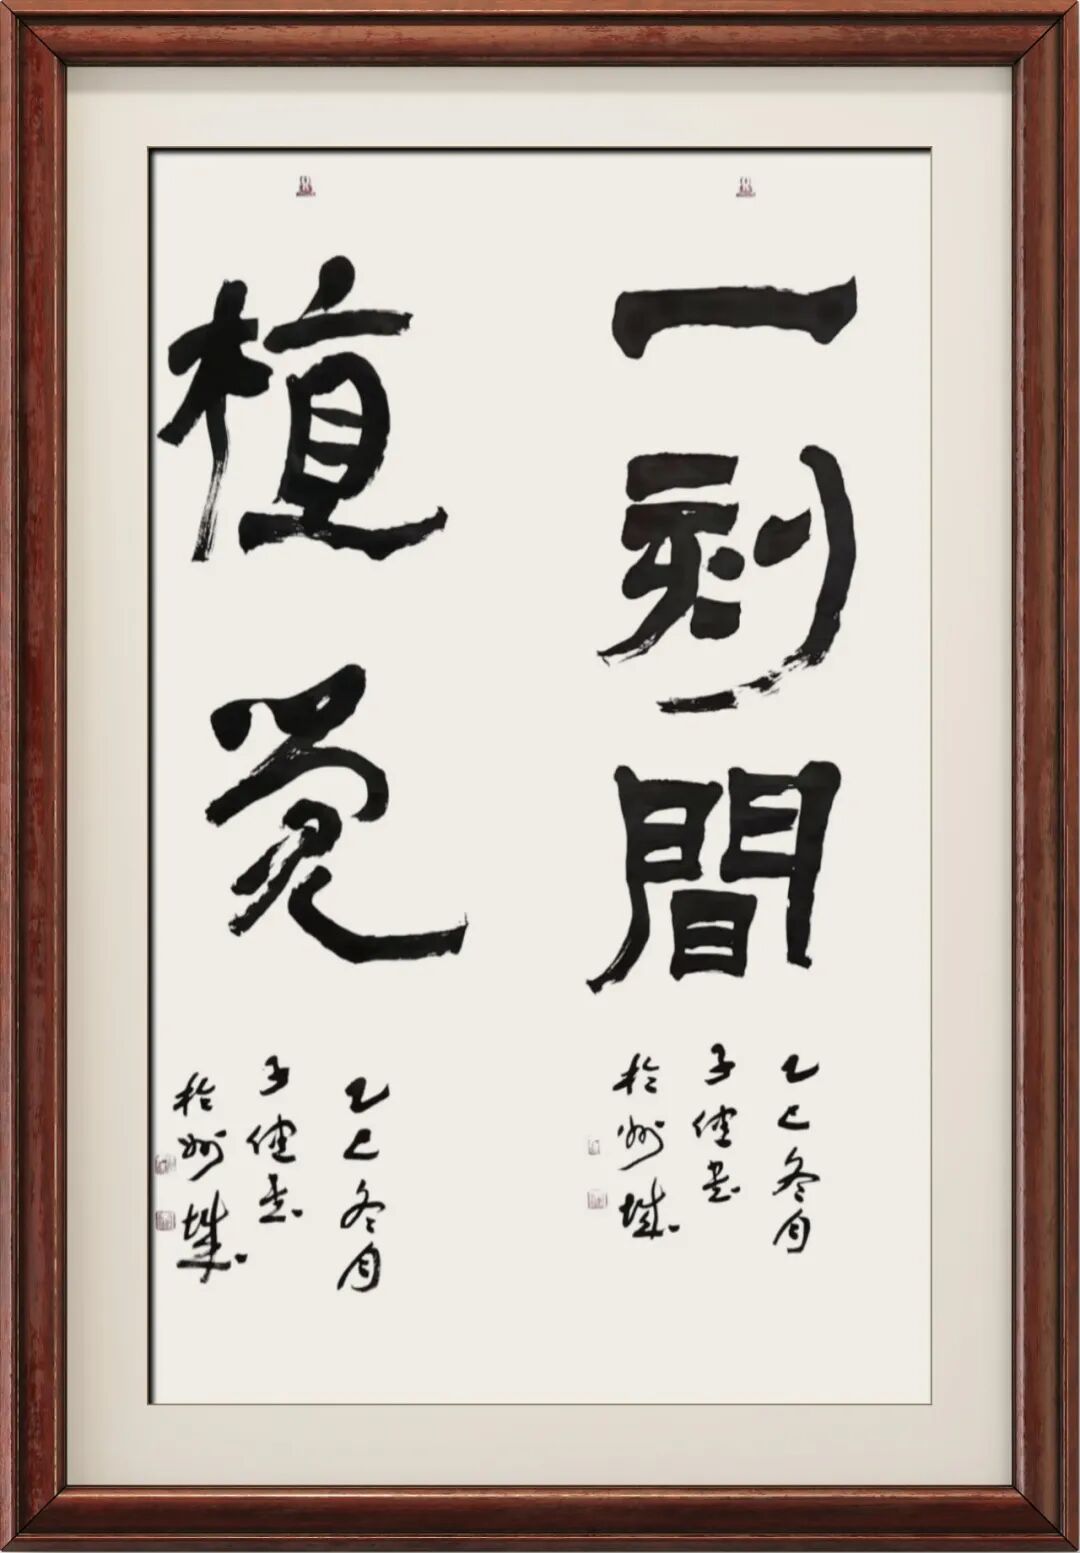 一刻間
乙巳冬月
子健书
於州城
植觉
乙巳冬月
子健书
於州城